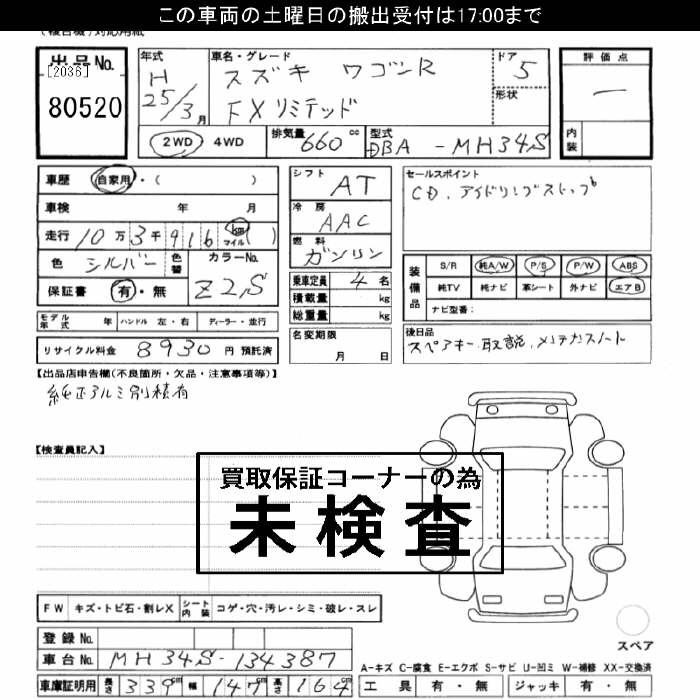 この車両の土曜日の搬出受付は17:00まで
出品No.
[2036]
80520
年式
H
25/3月
車名・グレード
スズキ ワゴンR
FXリミテッド
ドア
5
形状
2WD 4WD
排気量 660 cc
型式 DBA-MH34S
評価点
ー
内装
車歴 自家用・( )
車検 年 月
走行 10万3千916 km マイル ( )
色 シルバー 色替 カラーNo.
保証書 有・無 Z2S
モデル年式 年 ハンドル 左・右 ディーラー・並行
リサイクル料金 8930円 預託済
シフト AT
冷房 AAC
燃料 ガソリン
乗車定員 4名
積載量 kg
総重量 kg
名変期限
月 日
セールスポイント
CD、アイドリングストップ
装備品
S/R 純A/W P/S P/W ABS
純TV 純ナビ 革シート 外ナビ エアB
ナビ型番:
後日品
スペアキー、取説、メンテナスノート
【出品店申告欄(不良箇所・欠品・注意事項等)】
純正アルミ別積有
【検査員記入】
買取保証コーナーの為
未検査
FW キズ・トビ石・割レX シート内装 コゲ・穴・汚レ・シミ・破レ・スレ
登録No.
車台No. MH34S-134387
車庫証明用 長さ 339cm 幅 147cm 高さ 164cm
スペア
A-キズ C-腐食 E-エクボ S-サビ U-凹ミ W-補修 XX-交換済
工具 有・無 ジャッキ 有・無